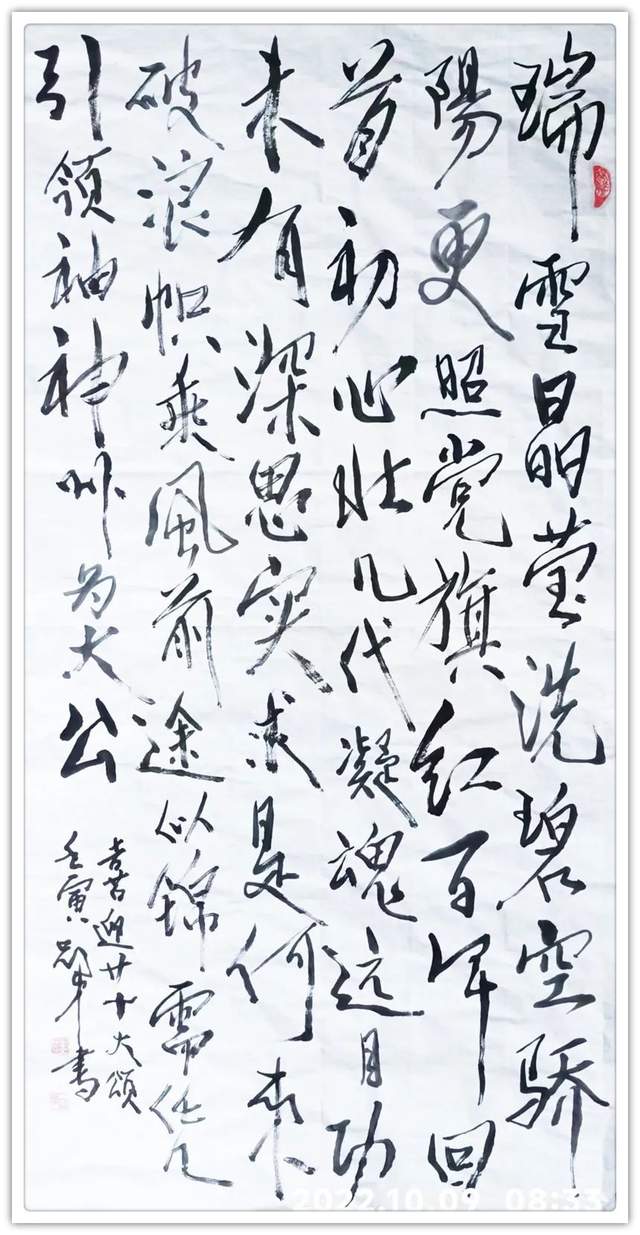 瑞雪晶莹洗碧空骄
陽更照党旗红百年回
首初心壮几代凝魂远目功
未有深思实求是何来
破浪帜乘风前途似锦需凭
引领袖神州为大公
喜迎廿十大颂
壬寅 书
2022.10.09 08:33